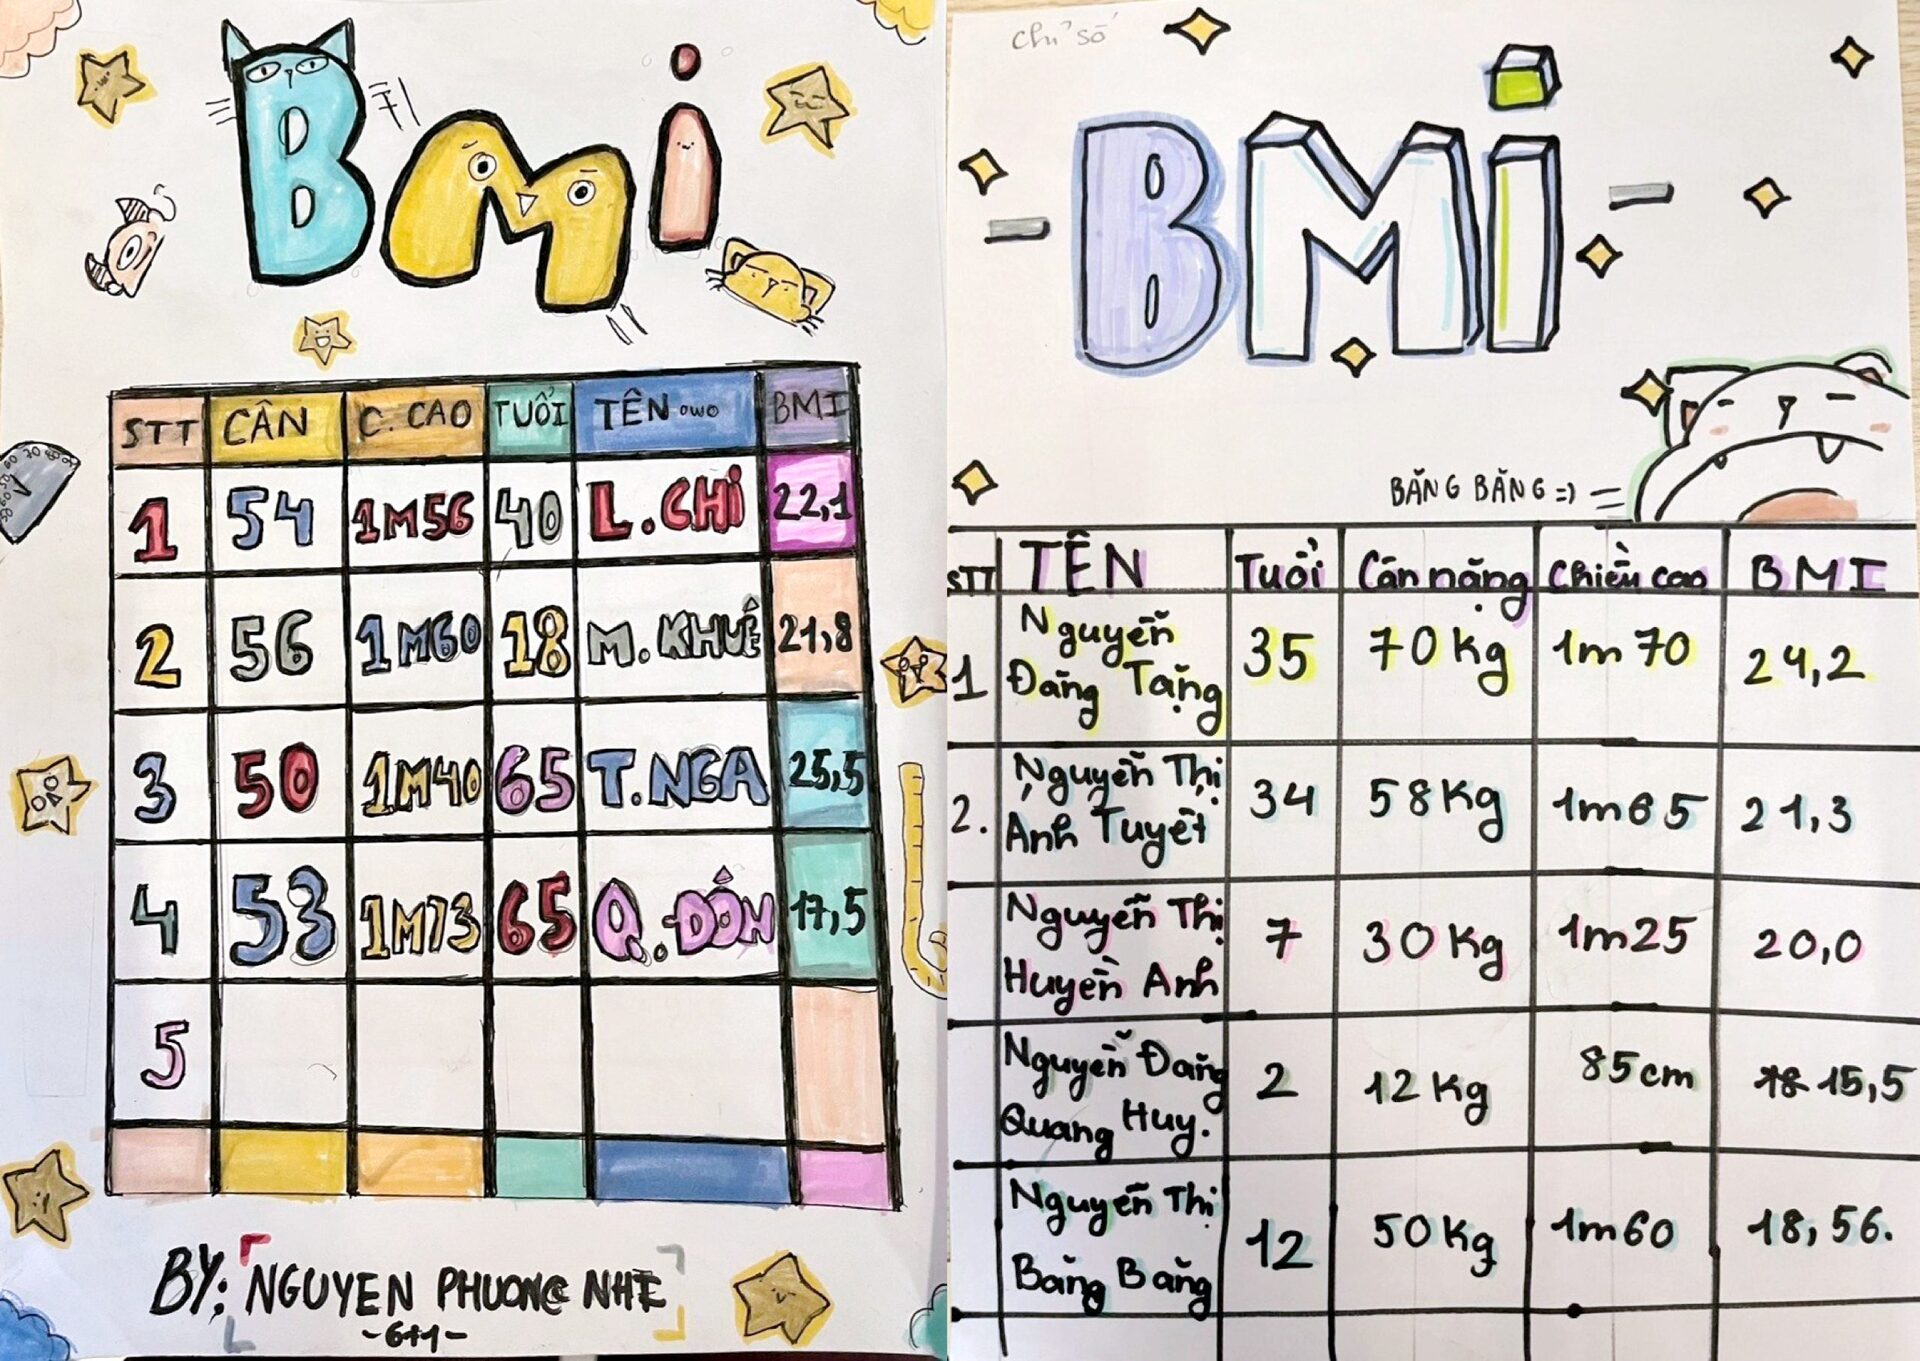 BMi
STT CÂN C. CAO TUỔI TÊN OWO BMI
1 54 1M56 40 L. CHi 22,1
2 56 1M60 18 M. KHUÊ 21,8
3 50 1M40 65 T. NGA 25,5
4 53 1M73 65 Q. ĐÔN 17,5
5
BY: NGUYEN PHUONG NHI
-6+1-
chỉ số
- BMi -
BĂNG BĂNG =)
STT TÊN Tuổi Cân nặng Chiều cao BMI
1 Nguyễn Đăng Tặng 35 70 kg 1m 70 24,2
2. Nguyễn Thị Anh Tuyết 34 58 Kg 1m65 21,3
Nguyễn Thị Huyền Anh 7 30 Kg 1m25 20,0
Nguyễn Đăng Quang Huy. 2 12 Kg 85cm 15,5
Nguyễn Thị Băng Băng 12 50 Kg 1m60 18,56.